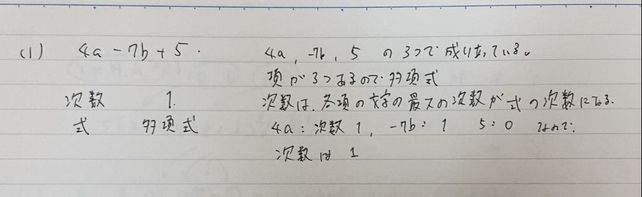 (1) 4a - 7b + 5. 4a, -7b, 5 の3つで成り立っている。
項が3つあるので多項式
次数 1. 次数は、各項の文字の最大の次数が式の次数になる。
式 多項式 4a : 次数 1, -7b : 1 5 : 0 なので、
次数は 1